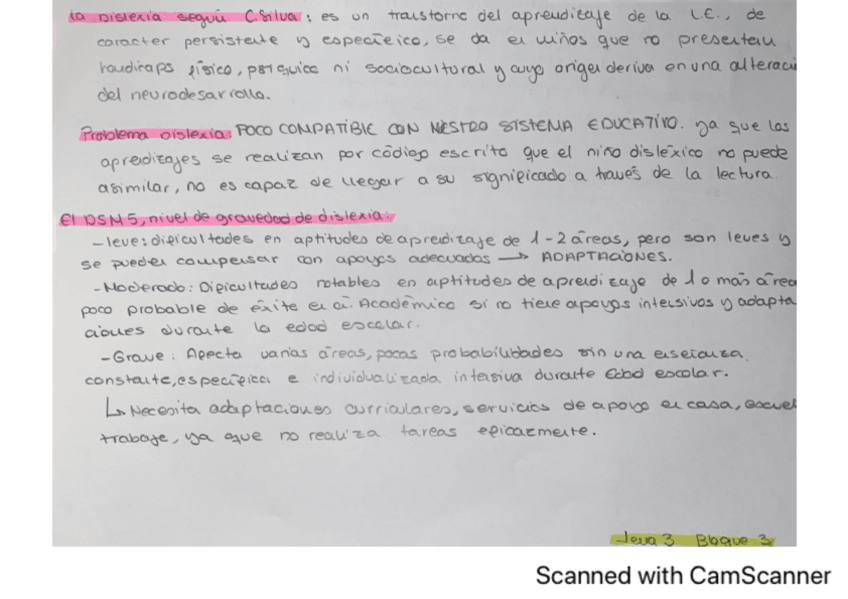 La Dislexia según CSilva: es un trastorno del aprendizaje de la L.E., de
caracter persistente y específico, se da en niños que no presentan
handicaps físico, psíquico ni sociocultural y cuyo origen deriva en una alteraci
del neurodesarrollo.
Problema dislexia: POCO COMPATIBLE CON NESTRO SISTEMA EDUCATIVO. ya que los
aprendizajes se realizan por código escrito que el niño disléxico no puede
asimilar, no es capaz de llegar a su significado a través de la lectura.
El DSM5, nivel de gravedad de dislexia:
-leve: dificultades en aptitudes de aprendizaje de 1-2 áreas, pero son leves y
se pueden compensar con apoyos adecuados → ADAPTACIONES.
-Moderado: Dificultades notables en aptitudes de aprendizaje de 1 o más área
poco probable de éxito en Académico si no tiene apoyos intensivos y adapta
ciones durante la edad escolar.
-Grave: Afecta varias áreas, pocas probabilidades sin una enseñanza
constante, específica e individualizada intensiva durante edad escolar.
↳ Necesita adaptaciones curriculares, servicios de apoyo en casa, escuel
trabajo, ya que no realiza tareas eficazmente.
Tema 3 Bloque 3
Scanned with CamScanner